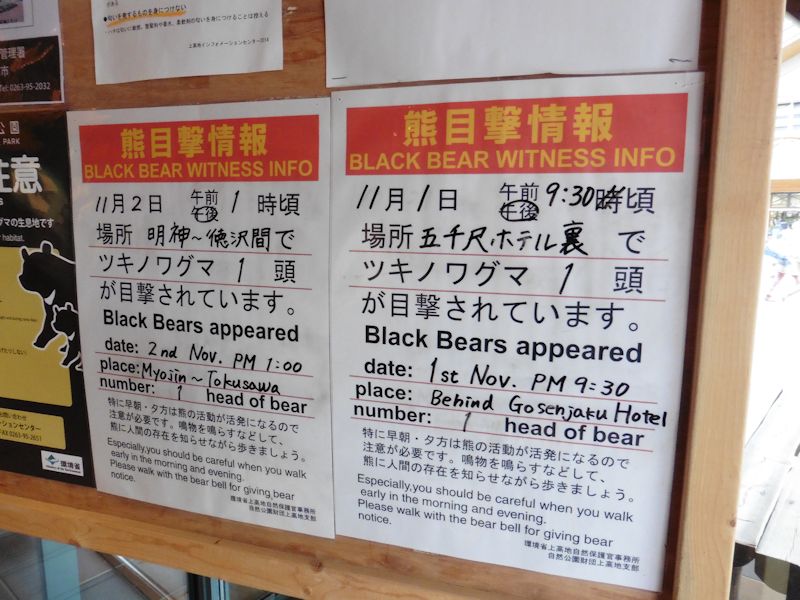 ●匂いを発するものを身につけない
上高地インフォメーションセンター2014
管理署
市
Tel: 0263-95-2032
公園
PARK
注意
クマの生息地です
habitat.
ーションセンター
FAX 0263-95-2651
環境省
熊目撃情報
BLACK BEAR WITNESS INFO
11月2日 午前 午後 1 時頃
場所 明神〜徳沢間で
ツキノワグマ 1 頭
が目撃されています。
Black Bears appeared
date: 2nd Nov. PM 1:00
place: Myojin ~ Tokusawa
number: 1 head of bear
特に早朝・夕方は熊の活動が活発になるので
注意が必要です。鳴物を鳴らすなどして、
熊に人間の存在を知らせながら歩きましょう。
Especially,you should be careful when you walk
early in the morning and evening.
Please walk with the bear bell for giving bear
notice.
環境省上高地自然保護官事務所
自然公園財団上高地支部
熊目撃情報
BLACK BEAR WITNESS INFO
11月1日 午前 午後 9:30時頃
場所 五千尺ホテル裏 で
ツキノワグマ 1 頭
が目撃されています。
Black Bears appeared
date: 1st Nov. PM 9:30
place: Behind Gosenjaku Hotel
number: 1 head of bear
特に早朝・夕方は熊の活動が活発になるので
注意が必要です。鳴物を鳴らすなどして、
熊に人間の存在を知らせながら歩きましょう。
Especially,you should be careful when you walk
early in the morning and evening.
Please walk with the bear bell for giving bear
notice.
環境省上高地自然保護官事務所
自然公園財団上高地支部